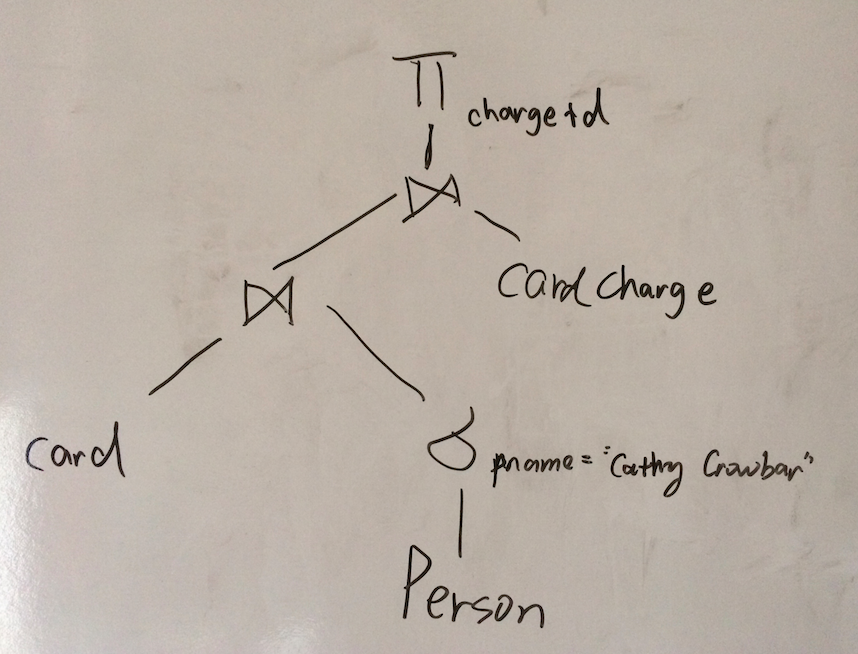 π chargeId
⋈
Card Charge
⋈
Card
σ pname = "Cathy Crowbar"
Person